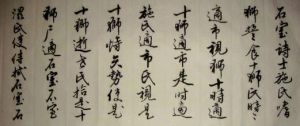 石室诗士施氏嗜
獅誓食十獅氏時時
適市視獅十時適
十獅適市是時適
施氏適市氏視是
十獅恃矢勢使是
十獅逝世氏拾是十
獅尸適石室石室
濕氏使侍拭石室石